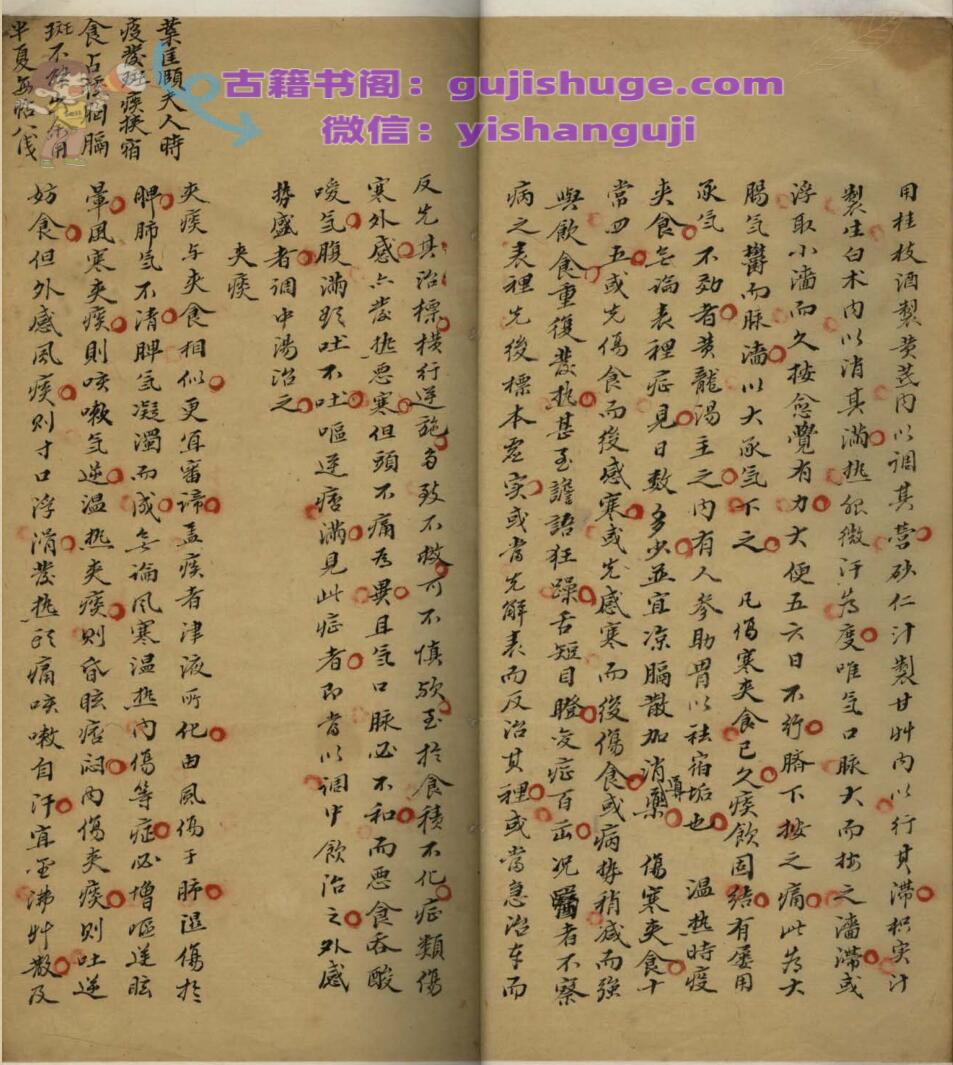 古籍书阁：gujishuge.com
微信：yishanguji
用桂枝酒製黄芪內以調其营砂仁汁製甘艸內以行其滞枳实汁
製生白术內以消其滿热服微汗為度唯气口脉大而按之濇滞或
浮取小濇而久按愈覺有力大便五六日不行臍下按之痛此為大
腸气欝而脉濇以大承气下之 凡傷寒夾食已久痰飲固結有屡用
承气不効者黄龍湯主之內有人參助胃以祛宿垢也 温热時疫
夾食無論表裡症見日数多少並宜凉膈散加消導藥 傷寒夾食十
常四五或先傷食而後感寒或先感寒而後傷食或病势稍减而强
與飲食重復發热甚至譫語狂躁舌短目瞪变症百出况醫者不察
病之表裡先後標本虚实或當先解表而反治其裡或當急治本而
反先其治標横行逆施多致不救可不慎欤至於食積不化症類傷
寒外感亦發热恶寒但頭不痛為異且气口脉必不和而恶食吞酸
噯气腹滿欲吐不吐嘔逆痞滿見此症者即當以調中飲治之外感
势盛者調中湯治之
夾痰
夾痰与夾食相似更宜審諦盖痰者津液所化由風傷于肺湿傷於
脾肺气不清脾气凝濁而成無論風寒温热內傷等症必增嘔逆眩
暈風寒夾痰則咳嗽气逆温热夾痰則昏眩痞闷內傷夾痰則吐逆
妨食但外感風痰则寸口浮滑發热頭痛咳嗽自汗宜金沸艸散及
葉匡頤夫人時
疫發斑痰挟宿
食占據胸膈
斑不 用
半夏每帖八戋